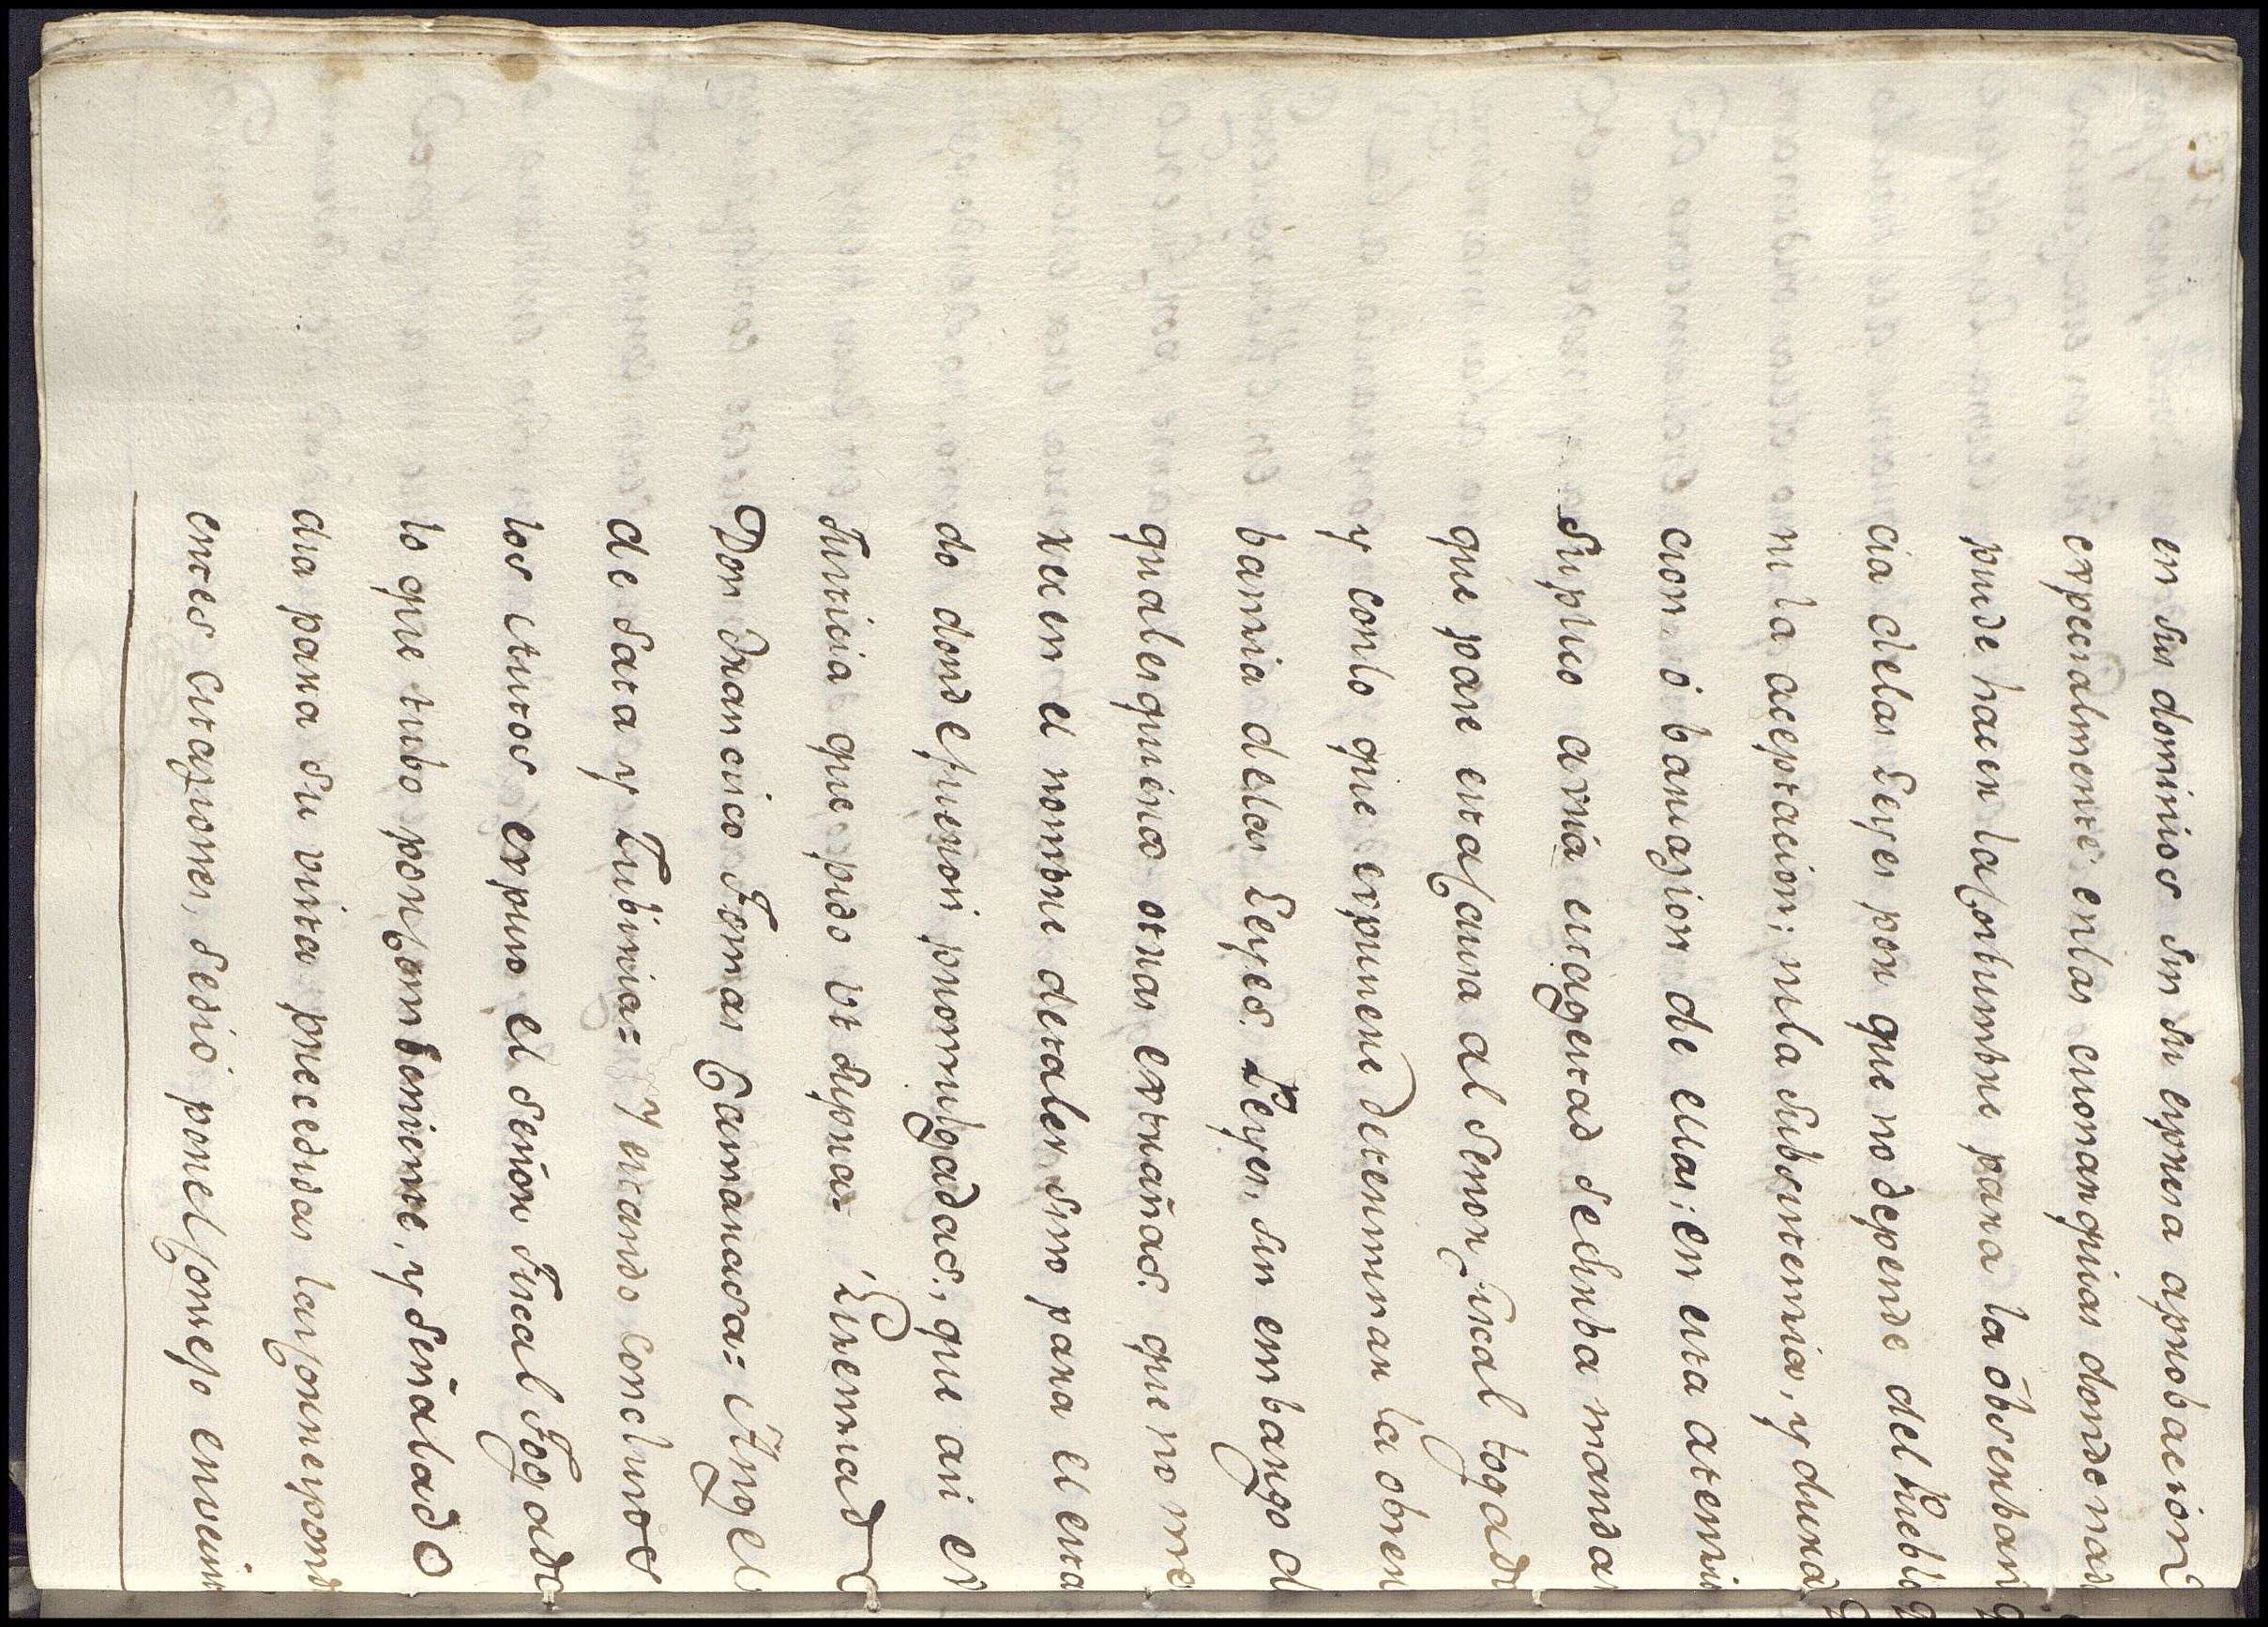 en sus dominios sin su expresa aprobacion
expecialmente en las monarquias donde nad
puede hacer la costumbre para la observan
cia de las Leyes por que no depende del Pueblo
ni la aceptacion: ni la subsistencia, y dura
cion ó bariazion de ellas: en esta atenci
Suplico a vña magestad se sirba manda
que pase esta causa al señor Fiscal togado
y con lo que expusiere determinar la obser
bancia de las Leyes. Leyes, sin embargo d
qualesquiera otras extrañas. que no me
recen el nombre de tales sino para el esta
do donde fueron promulgadas, que asi es
Justicia que pido vt supra. Lizenciado
Don Francisco Tomas Camarasa= Angel
de Sata y Zubiria= Y estando conclusos
los Autos expuso el señor Fiscal Togado
lo que tubo por combeniente, y señalado
dia para su vista precedidas las correspond
entes citaziones, se dio por el Consejo en vein